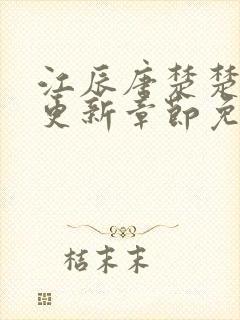 江辰唐楚楚
更新章节免
桔末末